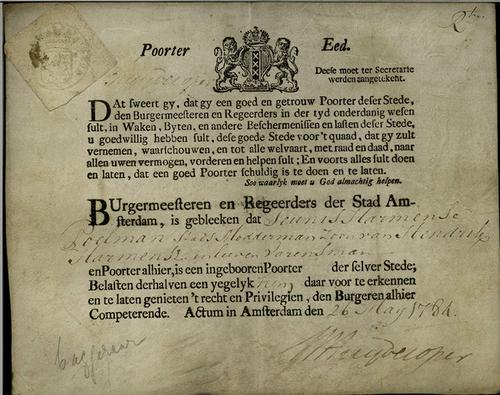 Poorter Eed.
Deese moet ter Secretarie
werden aangetekent.
DAt sweert gy, dat gy een goed en getrouw Poorter deser Stede,
den Burgermeesteren en Regeerders in der tyd onderdanig wesen
sult, in Waken, Byten, en andere Beschermenissen en lasten deser Stede,
u goedwillig hebben sult, dese goede Stede voor 't quaad, dat gy zult
vernemen, waarschouwen, en tot alle welvaart, met raad en daad, naar
allen uwen vermogen, vorderen en helpen sult; En voorts alles sult doen
en laten, dat een goed Poorter schuldig is te doen en te laten.
Soo waarlyk moet u God almachtig helpen.
BUrgermeesteren en Regeerders der Stad Am-
sterdam, is gebleeken dat Teunis Harmense
Poelman Modderman Zoon van Hendrik
Harmensz
en Poorter alhier, is een ingebooren Poorter der selver Stede;
Belasten derhalven een yegelyk hem daar voor te erkennen
en te laten genieten 't recht en Privilegien, den Burgeren alhier
Competerende. Actum in Amsterdam den 26 May 1784.